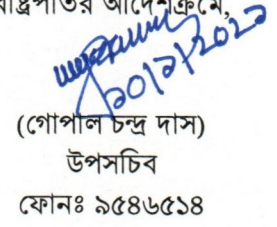 রাষ্ট্রপতির আদেশক্রমে,
(গোপাল চন্দ্র দাস)
উপসচিব
ফোনঃ ৯৫৪৬৫১৪